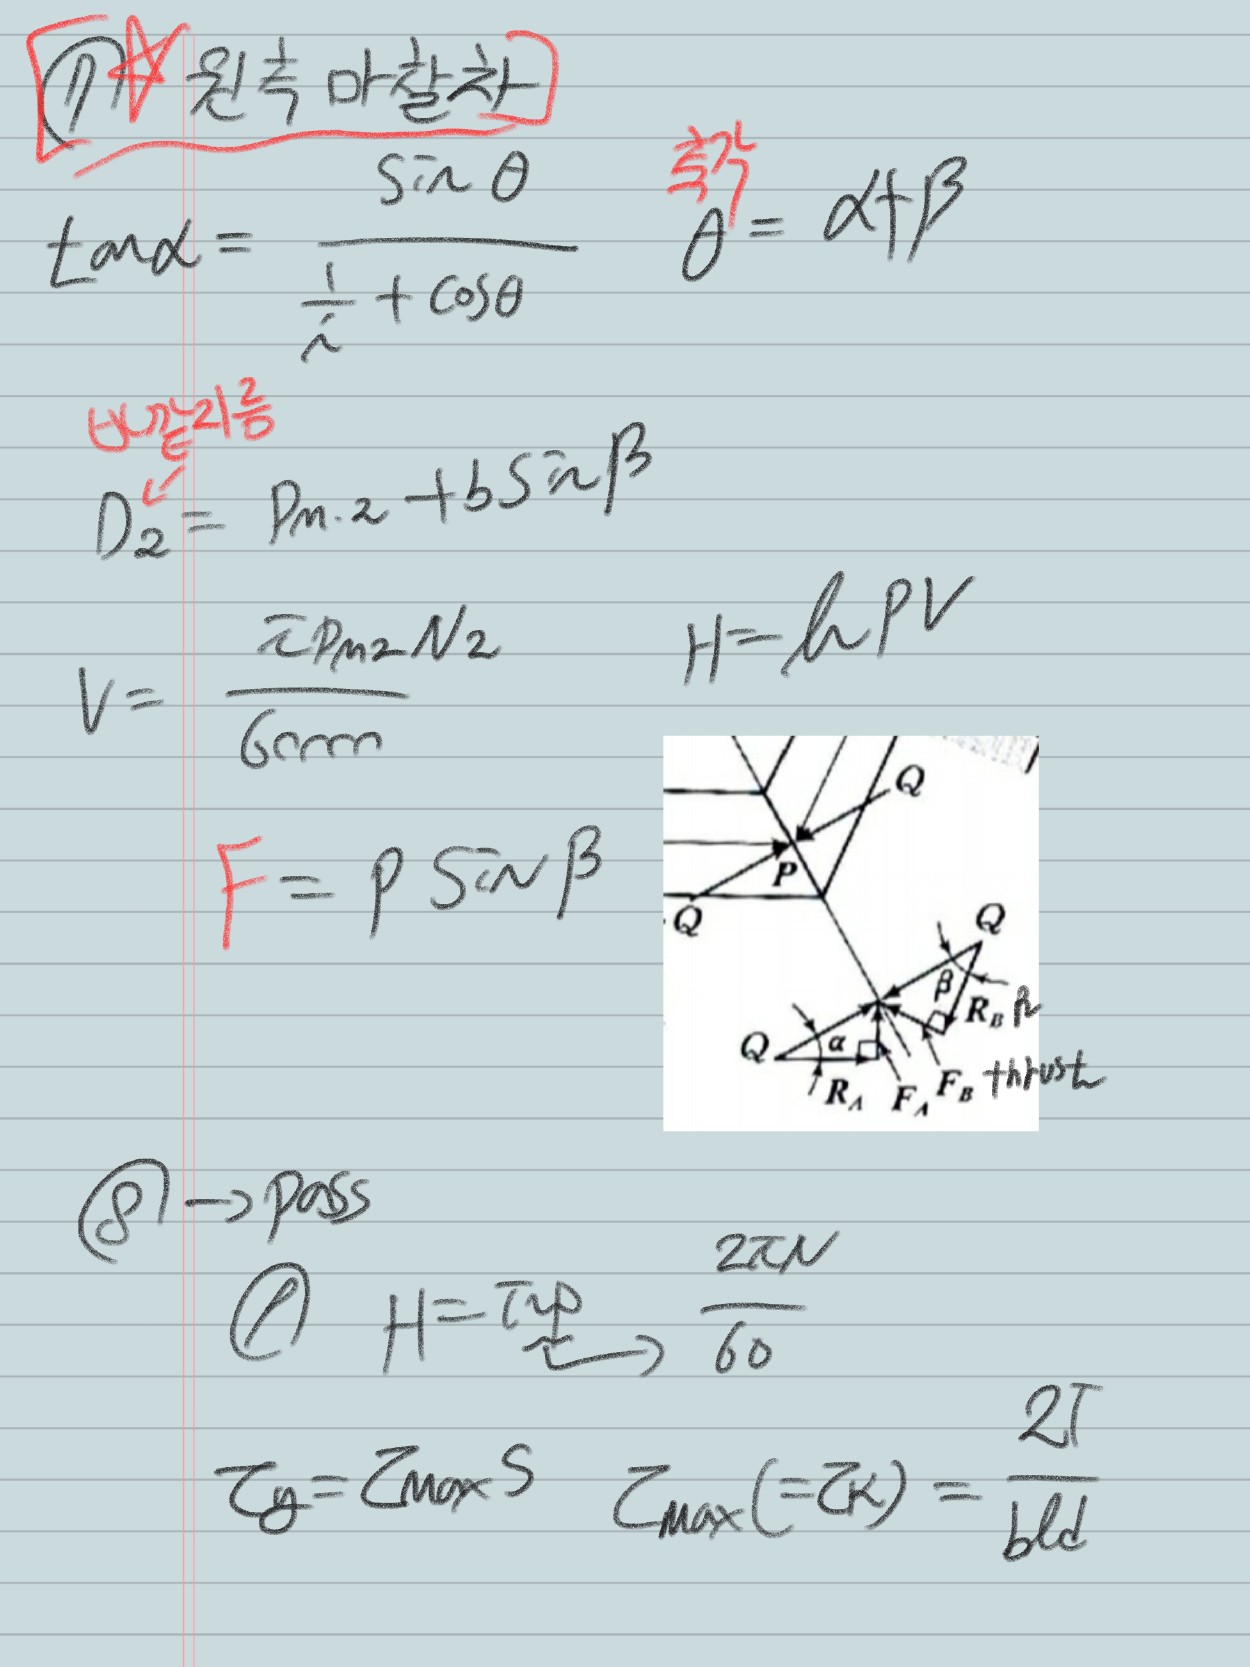 ⑦ ☆ 원추 마찰차
tanα = sinθ / (1/i + cosθ)
축각
θ = α+β
바깥지름
D₂ = Dm.2 + bsinβ
V = πDm2N2 / 60000
H = μPV
F = P sinβ
Q
P
Q
Q
β
R_B
Q
α
R_A
F_A
F_B thrust
⑧ → pass
H = Tω → 2πN / 60
τy = τmax S
τmax(=τk) = 2T / bld